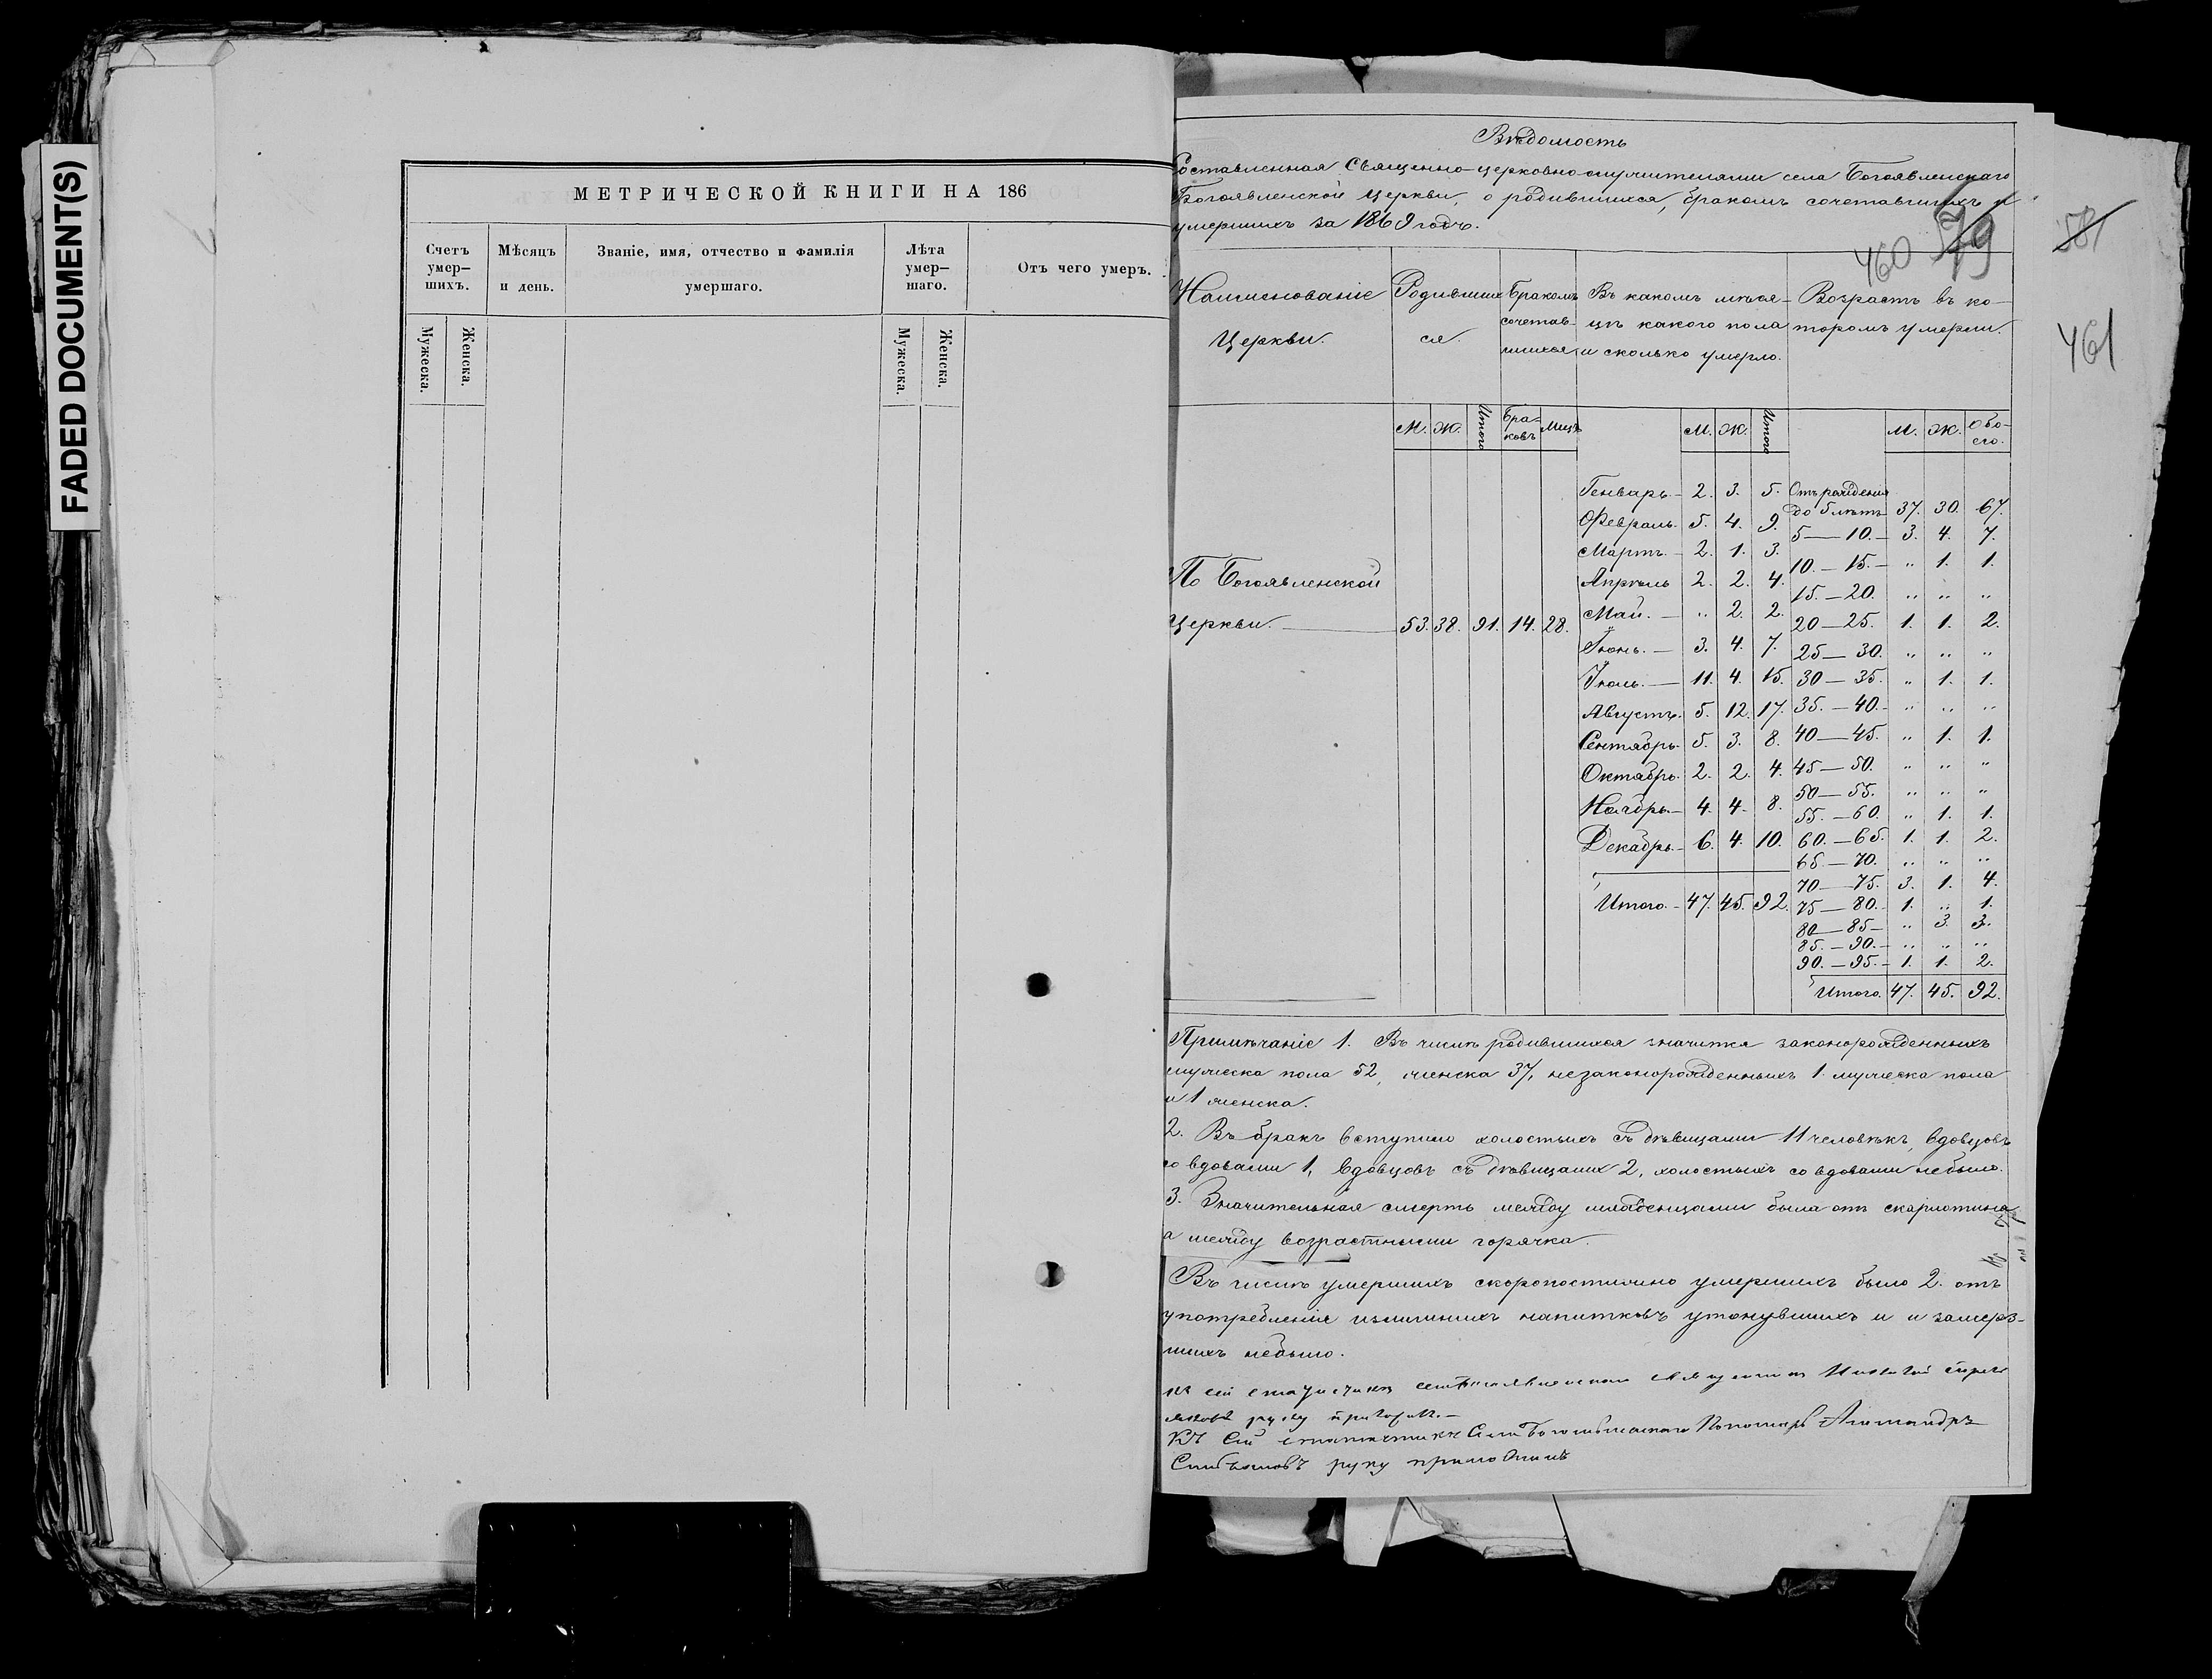 FADED DOCUMENT(S)
МЕТРИЧЕСКОЙ КНИГИ НА 186
Счетъ умер— шихъ.
Мѣсяцъ и день.
Званіе, имя, отчество и фамилія умершаго.
Лѣта умер— шаго.
Отъ чего умеръ.
Мужеска. Женска. Мужеска. Женска.
Вѣдомость
Составленная Священно-церковно-служителями села Богоявленскаго
Богоявленской Церкви, о родившихся, бракомъ сочетавшихся и
умершихъ за 1869 годъ.
460 579 581
461
Наименованіе Церкви.
Родивших ся.
Бракомъ сочетав- шихся
Въ какомъ мѣся- цѣ какого пола и сколько умерло.
Возрастъ въ ко- торомъ умерли.
М. Ж. Итого Бра- ковъ Лицъ М. Ж. Итого М. Ж. Обо- его.
По Богоявленской
Церкви. — 53. 38. 91. 14. 28.
Генварь — 2. 3. 5.
Февраль. 5. 4. 9.
Мартъ. — 2. 1. 3.
Апрѣль 2. 2. 4.
Май. — „ 2. 2.
Іюнь. — 3. 4. 7.
Іюль. — 11. 4. 15.
Августъ. 5. 12. 17.
Сентябрь. 5. 3. 8.
Октябрь. 2. 2. 4.
Ноябрь — 4. 4. 8.
Декабрь. — 6. 4. 10.
Итого. — 47. 45. 92.
Отъ рожденія
до 5 лѣтъ 37. 30. 67.
5 — 10. — 3. 4. 7.
10. — 15. — „ 1. 1.
15. — 20. „ „ „
20 — 25. 1. 1. 2.
25 — 30. „ „ „
30 — 35. „ 1. 1.
35. — 40. „ „ „
40 — 45. „ 1. 1.
45 — 50. „ „ „
50 — 55. „ „ „
55. — 60. „ 1. 1.
60. — 65. 1. 1. 2.
65 — 70. „ „ „
70 — 75. 3. 1. 4.
75 — 80. 1. „ 1.
80 — 85 — „ 3. 3.
85. — 90. — „ „ „
90. — 95. — 1. 1. 2.
Итого. 47. 45. 92.
Примѣчаніе 1. Въ числѣ родившихся значится законорожденныхъ
мужеска пола 52, женска 37, незаконорожденныхъ 1. мужеска пола
и 1 женска.
2. Въ бракъ вступило холостыхъ съ дѣвицами 11 человѣкъ, вдовцовъ
со вдовами 1, вдовцовъ съ дѣвицами 2, холостыхъ со вдовами небыло.
3. Значительная смерть между младенцами была отъ скарлотина
а между возрастными горячка.
Въ числѣ умершихъ скоропостижно умершихъ было 2. отъ
употребленія излишнихъ напитковъ утонувшихъ и и замерз-
шихъ небыло.
руку
Къ сей Пономарь Александръ
руку приложилъ